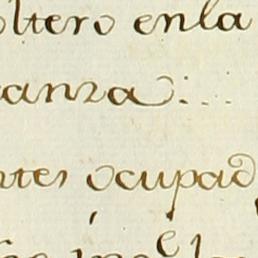 oltero enla
anza:...
ntes ocupad